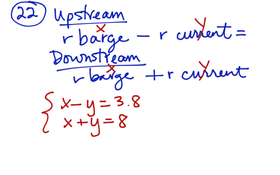 22 Upstream
r barge x − r current y =
Downstream
r barge x + r current y
{ x − y = 3.8
x + y = 8